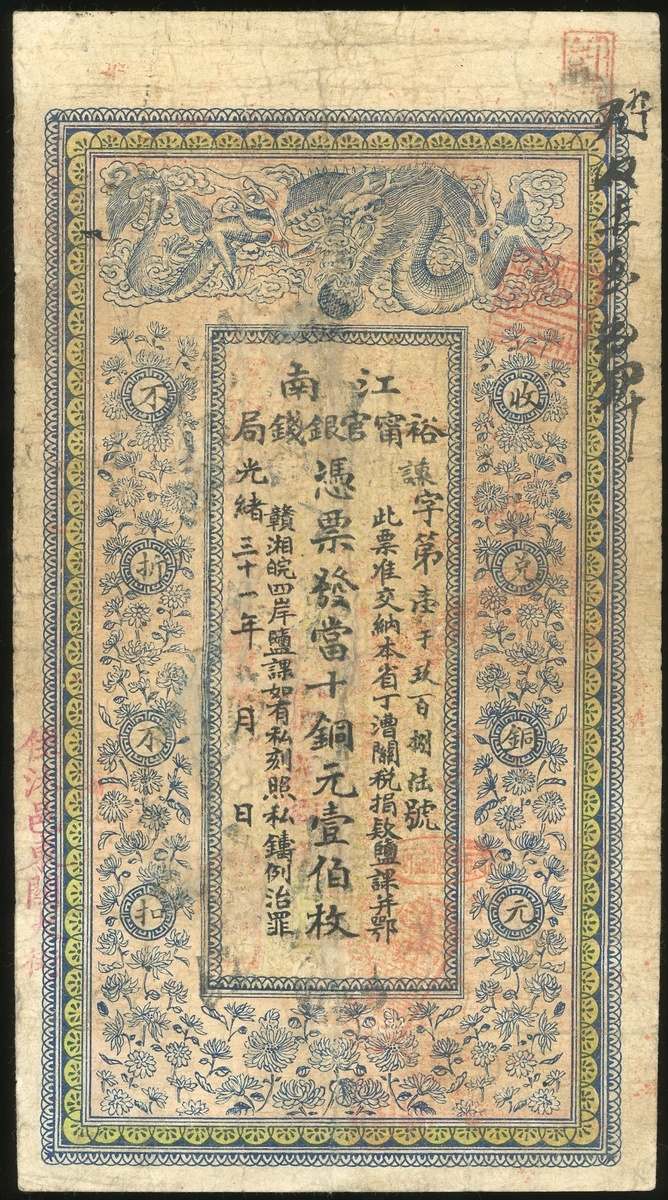 江南
裕甯官銀錢局
收兌銅元
諫字第壹千玖百捌陸號
此票准交納本省丁漕關稅捐款鹽課并鄂
憑票發當十銅元壹佰枚
贛湘皖四岸鹽課如有私刻照私鑄例治罪
光緒三十一年 月 日
不折不扣